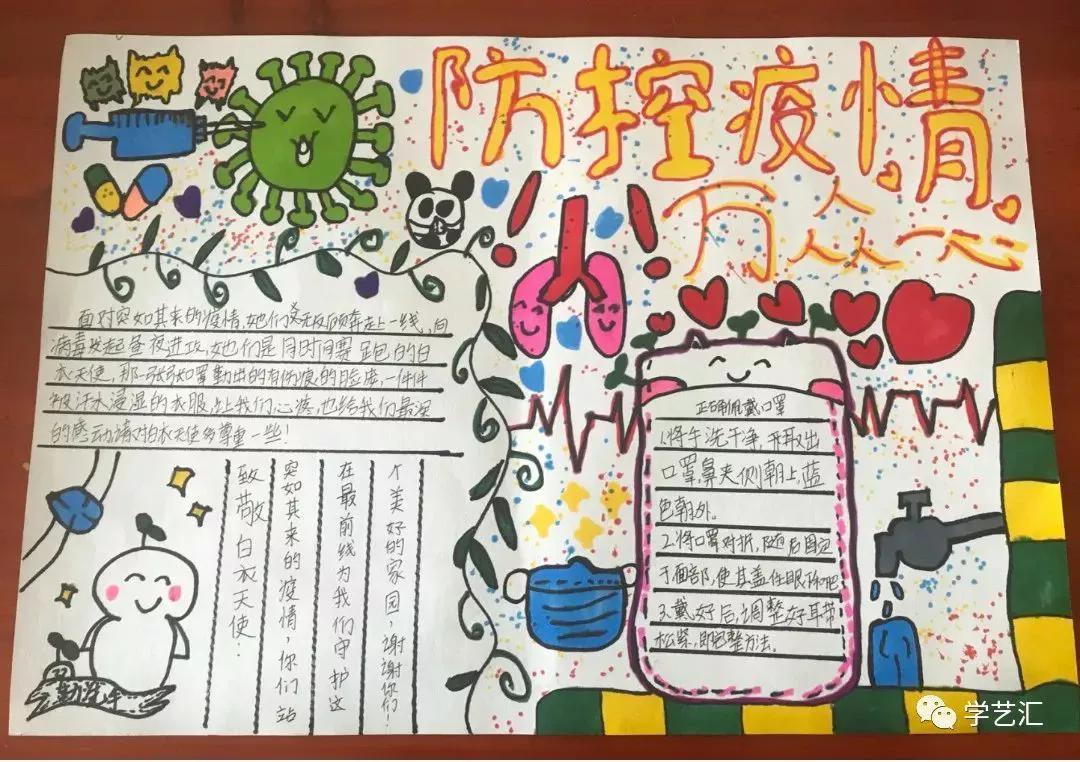 防控疫情
万众一心
面对突如其来的疫情,她们义无反顾奔走上一线,向
病毒发起昼夜进攻,她们是同时间赛跑的白
衣天使,那一张张口罩勒出的有伤痕的脸庞,一件件
被汗水浸湿的衣服,让我们心疼,也给我们最深
的感动请对白衣天使多尊重一些!
致敬白衣天使:
突如其来的疫情,你们站
在最前线为我们守护这
个美好的家园,谢谢你们!
勤洗手
正确佩戴口罩
1.将手洗干净,并取出
口罩,鼻夹侧朝上,蓝
色朝外。
2.将口罩对折,随后固定
于面部,使其盖住眼
3.戴好后,调整好耳带
松紧,即完整方法。
学艺汇